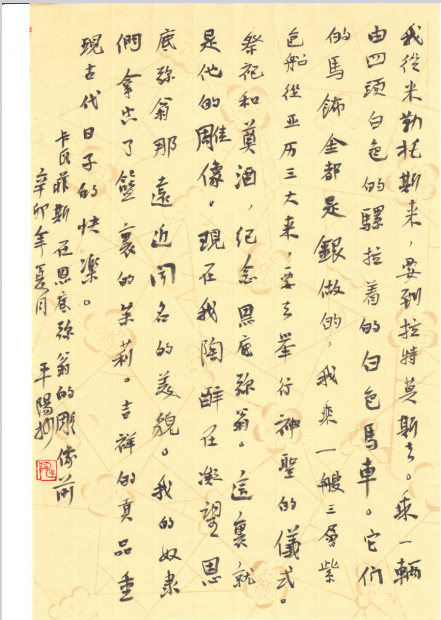 我從米勒托斯来，要到拉特莫斯去。乘一輛
由四頭白色的騾拉着的白色馬車。它们
的馬飾全都是銀做的。我乘一艘三層紫
色船從亚历三大来，要去举行神聖的儀式。
祭祀和奠酒，纪念恩底弥翁。這裏就
是他的雕像。現在我陶醉在凝望恩
底弥翁那遠近闻名的美貌。我的奴隶
們拿空了籃裏的茉莉。吉祥的真品重
現古代日子的快樂。
卡瓦菲斯在恩底弥翁的彫像前
辛卯年夏月 平陽抄